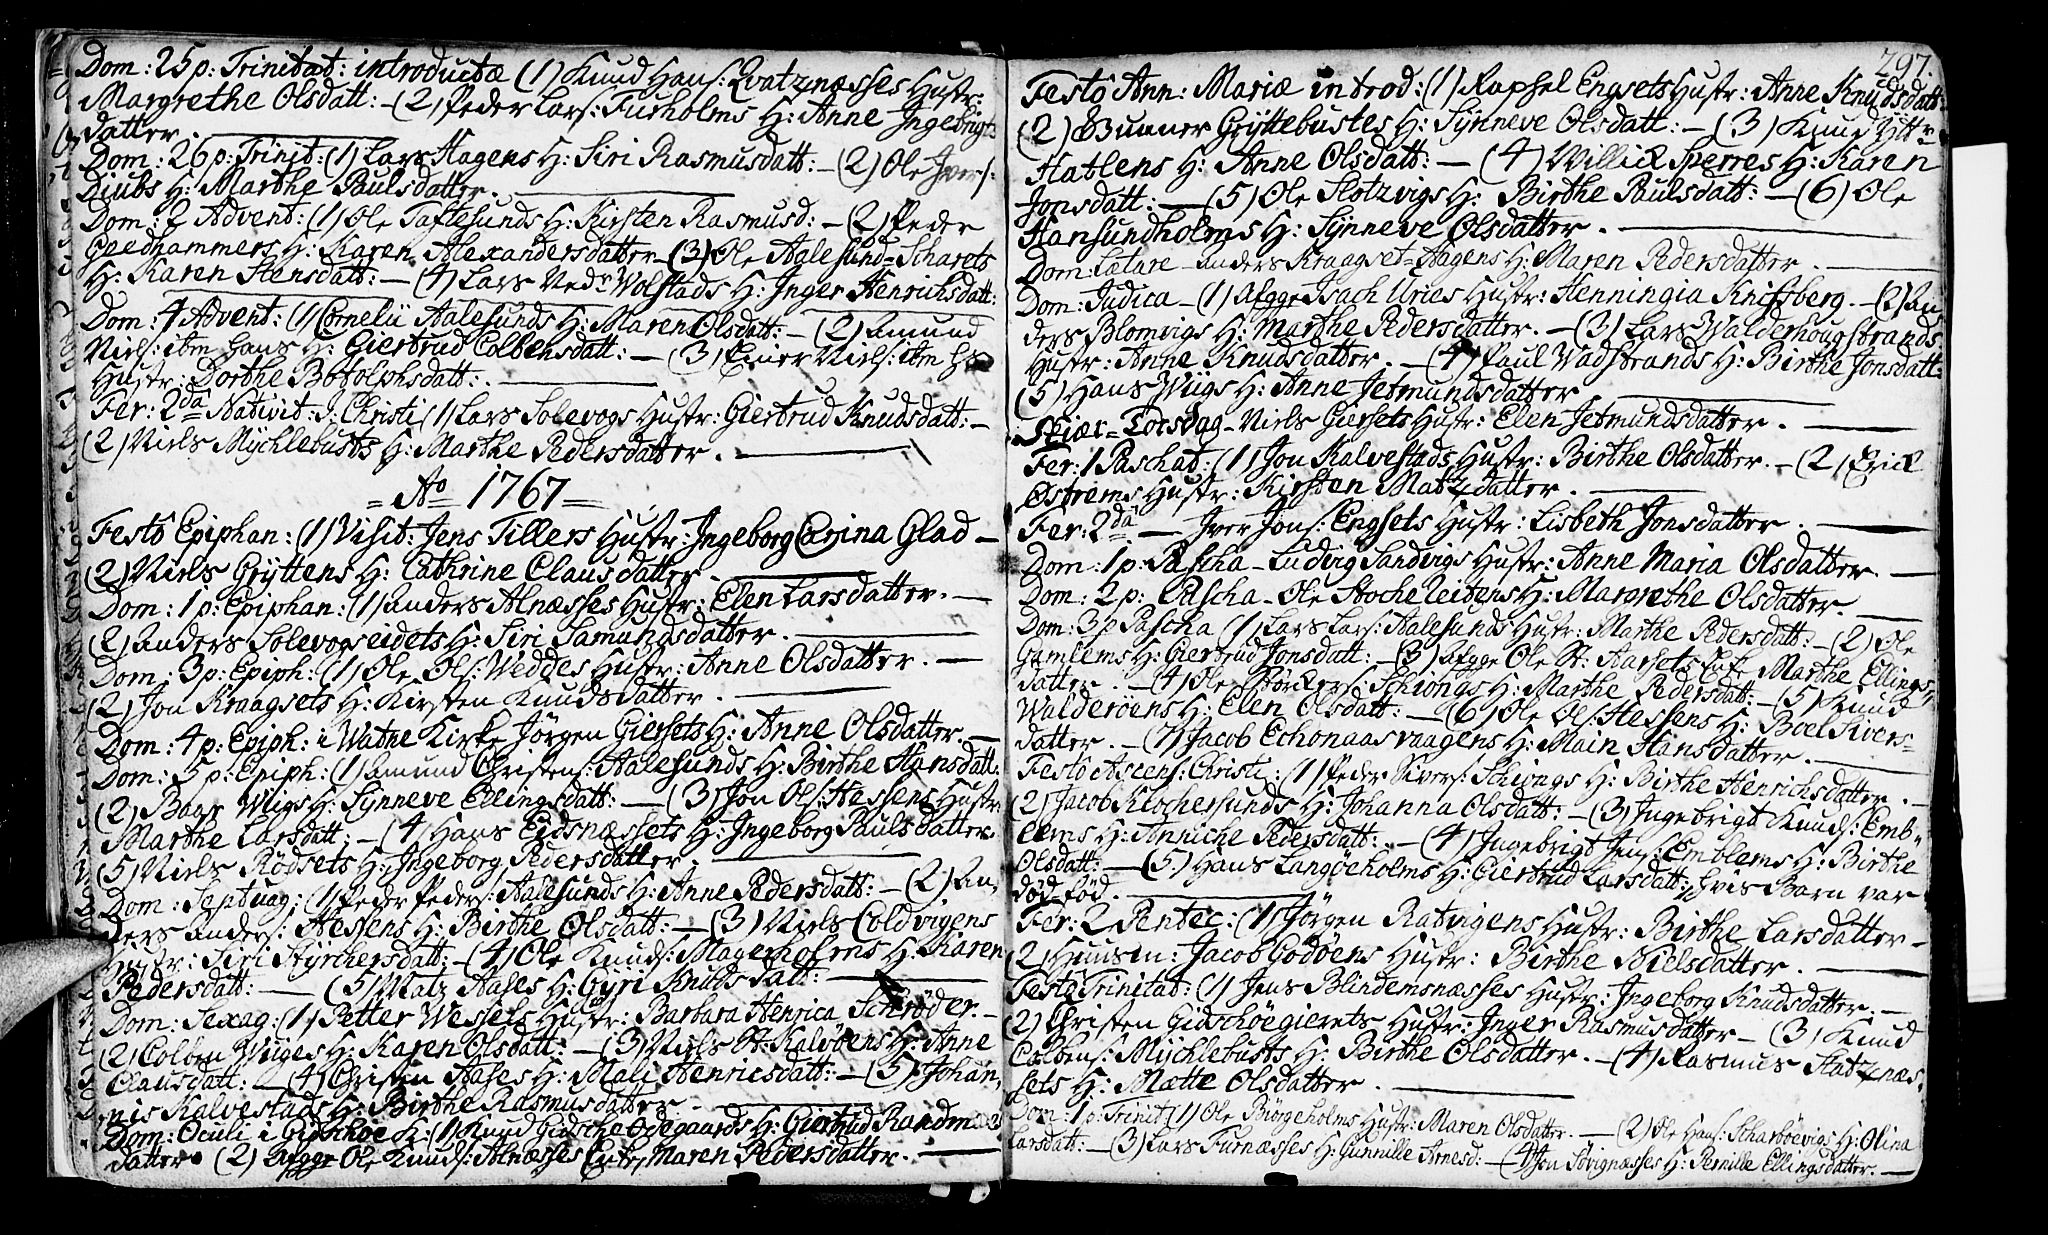 Dom: 25 p: Trinitat: introductæ (1) Knud Hans: Qvatznæsses Hustr:
Margrethe Olsdatt: – (2) Peder Lars: Furholms H: Anne Ingebrigts
datter.
Dom: 26 p: Trinit: (1) Lars Hagens H: Siri Rasmusdatt: – (2) Ole Ivers:
Diubs H: Marthe Paulsdatter.
Dom: 2 Advent: (1) Ole Taftesunds H: Kirsten Rasmusd: – (2) Peder
Geedhammers H: Karen Alexandersdatter – (3) Ole Aalesund-Scharets
H: Karen Stensdatt: – (4) Lars Nedr Wolstads H: Inger Henrichsdatt:
Dom: 4 Advent: (1) Cornelii Aalesunds H: Maren Olsdatt: – (2) Amund
Niels: itm hans H: Giertrud Colbensdatt: – (3) Einer Niels: itm
Hustr: Dorthe Botolphsdatt:
Fer: 2da Nativit: J: Christi (1) Lars Solevogs Hustr: Giertrud Knudsdatt: –
(2) Niels Mÿchlebusts H: Marthe Pedersdatter.
= Ao 1767 =
Festo Epiphan: (1) Visit: Jens Tillers Hustr: Ingeborg Carina Glad –
(2) Niels Grÿttens H: Cathrine Clausdatter.
Dom: 1 p: Epiphan: (1) Anders Alnæsses Hustr: Elen Larsdatter. –
(2) Anders Solevogseidets H: Siri Samundsdatter.
Dom: 3 p: Epiph: (1) Ole Ols: Weddes Hustr: Anne Olsdatter. –
(2) Jon Kraagsets H: Kirsten Knudsdatter.
Dom: 4 p: Epiph: i Watne Kirke Jörgen Giersets H: Anne Olsdatter. –
Dom: 5 p: Epiph: (1) Amund Christens: Aalesunds H: Birthe Hansdatt:
(2) Baar Wiigs H: Sÿnneve Ellingsdatt: – (3) Jon Ols: Hessens Hustr:
Marthe Larsdatt: – (4) Hans Eidsnæssets H: Ingeborg Paulsdatter.
(5) Niels Rödsets H: Ingeborg Pedersdatter.
Dom: Septuag: (1) Peder Peders: Aalesunds H: Anne Pedersdatt: – (2) An,
ders Anders: Hessens H: Birthe Olsdatt: – (3) Niels Coldvigens
Hustr: Siri Stÿrchersdatt: – (4) Ole Knuds: Magerholms H: Karen
Pedersdatt: – (5) Matz Aases H: Gÿri Knudsdatt:
Dom: Sexag: (1) Petter Wessels Hustr: Barbara Henrica Schrøder. –
(2) Colben Wiiges H: Karen Olsdatt: – (3) Niels St: Kalvöens H: Anne
Clausdatt: – (4) Christen Aases H: Mali Henricsdatt: – (5) Johan,
nis Kalvestads H: Birthe Rasmusdatter.
Dom: Oculi i Gidschöe K: (1) Knud Gidsche Ödegaards H: Giertrud Randm
datter. (2) Afgge Ole Knuds: Alnæsses Enke, Maren Pedersdatter.
297.
Festo Ann: Mariæ introd: (1) Raphel Engsets Hustr: Anne Knudsdatt:
(2) Gunner Grÿttebustes H: Sÿnneve Olsdatt: – (3) Knud Ÿttr
Hatlens H: Anne Olsdatt: – (4) Willick Sperres H: Karen
Jonsdatt: – (5) Ole Slotzvigs H: Birthe Paulsdatt: – (6) Ole
Hansundholms H: Sÿnneve Olsdatter.
Dom: Lætare – Anders Kraagset-Hagens H: Maren Pedersdatter.
Dom: Judica – (1) Afgge Isach Uries Hustr: Henningia Kniffsberg. – (2) An,
ders Blomvigs H: Marthe Pedersdatter. – (3) Lars Walderhougstrands
Hustr: Anne Knudsdatter. – (4) Paul Wadstrands H: Birthe Jonsdatt:
(5) Hans Wiigs H: Anne Jetmundsdatter
Skiær-Torsdag – Niels Giersets Hustr: Elen Jetmundsdatter.
Fer: 1 Paschat: (1) Jon Kalvestads Hustr: Birthe Olsdatter. – (2) Erick
Östrems Hustr: Kirsten Matzdatter.
Fer: 2da – Iver Jons: Engsets Hustr: Lisbeth Jonsdatter.
Dom: 1 p: Pascha – Ludvig Sandvigs Hustr: Anne Maria Olsdatter. –
Dom: 2 p: Pascha – Ole Stocheleitens H: Margrethe Olsdatter.
Dom: 3 p Pascha (1) Lars Lars: Aalesunds Hustr: Marthe Pedersdatt: – (2) Ole
Gamlems H: Giertrud Jonsdatt: – (3) Afgge Ole St: Aarsets Enke Marthe Ellings,
datter. – (4) Ole Börckers: Schiongs H: Marthe Pedersdatt: – (5) Knud
Walderöens H: Elen Olsdatt: – (6) Ole Ols: Hessens H: Boel Sivers-
datter. – (7) Jacob Echonaasvaagens H: Marin Hansdatter.
Festo Ascens: Christi: (1) Peder Sivers: Schiongs H: Birthe Henrichsdatter. –
(2) Jacob Klochersunds H: Johanna Olsdatt: – (3) Ingebrigt Knuds: Emb-
lems H: Anniche Pedersdatt: – (4) Ingebrigt Jens: Emblems H: Birthe
Olsdatt: – (5) Hans Langöeholms H: Giertrud Larsdatt: hvis Barn var
död-föd.
Fer: 2 Pentec: (1) Jörgen Ratvigens Hustr: Birthe Larsdatter –
2) Huusm: Jacob Godöens Hustr: Birthe Nielsdatter.
Festo Trinitat: (1) Jens Blindemsnæsses Hustr: Ingeborg Knudsdatter. –
(2) Christen Gidschöegierets Hustr: Inger Rasmusdatter – (3) Knud
Colbens: Mÿchlebusts H: Birthe Olsdatter. – (4) Rasmus Hatznæs,
sets H: Mætte Olsdatter.
Dom: 1 p: Trinit: (1) Ole Biörgeholms Hustr: Maren Olsdatter. – (2) Ole Hans: Scharböevigs H: Olina
Larsdatt: – (3) Lars Furnæsses H: Gunnille Arnesd: – (4) Jon Sövignæsses H: Pernille Ellingsdatter. –